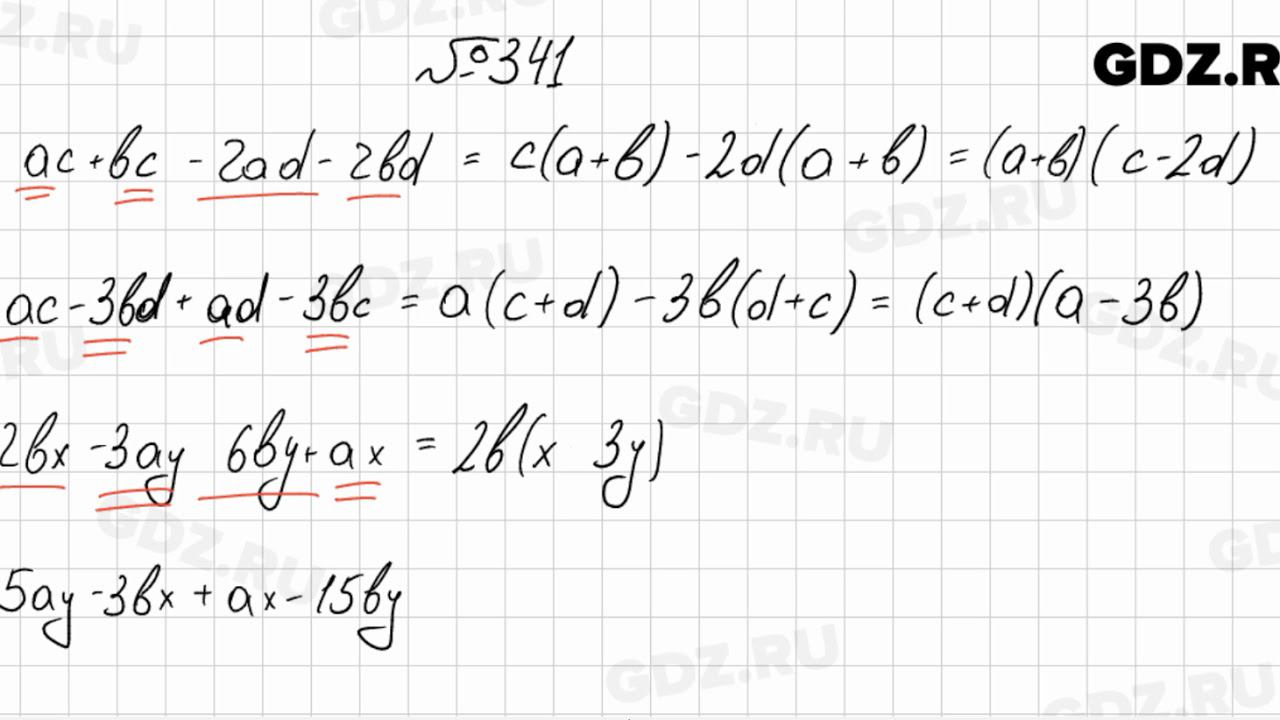 №341
GDZ.R
ac+bc-2ad-2bd = c(a+b)-2d(a+b)=(a+b)(c-2d)
ac-3bd+ad-3bc = a(c+d)-3b(d+c)=(c+d)(a-3b)
2bx-3ay 6by+ax = 2b(x 3y)
5ay-3bx+ax-15by
GDZ.RU
GDZ.RU
GDZ.RU
GDZ.RU
GDZ.RU
GDZ.RU
GDZ.RU
GDZ.RU
GDZ.RU
GDZ.RU